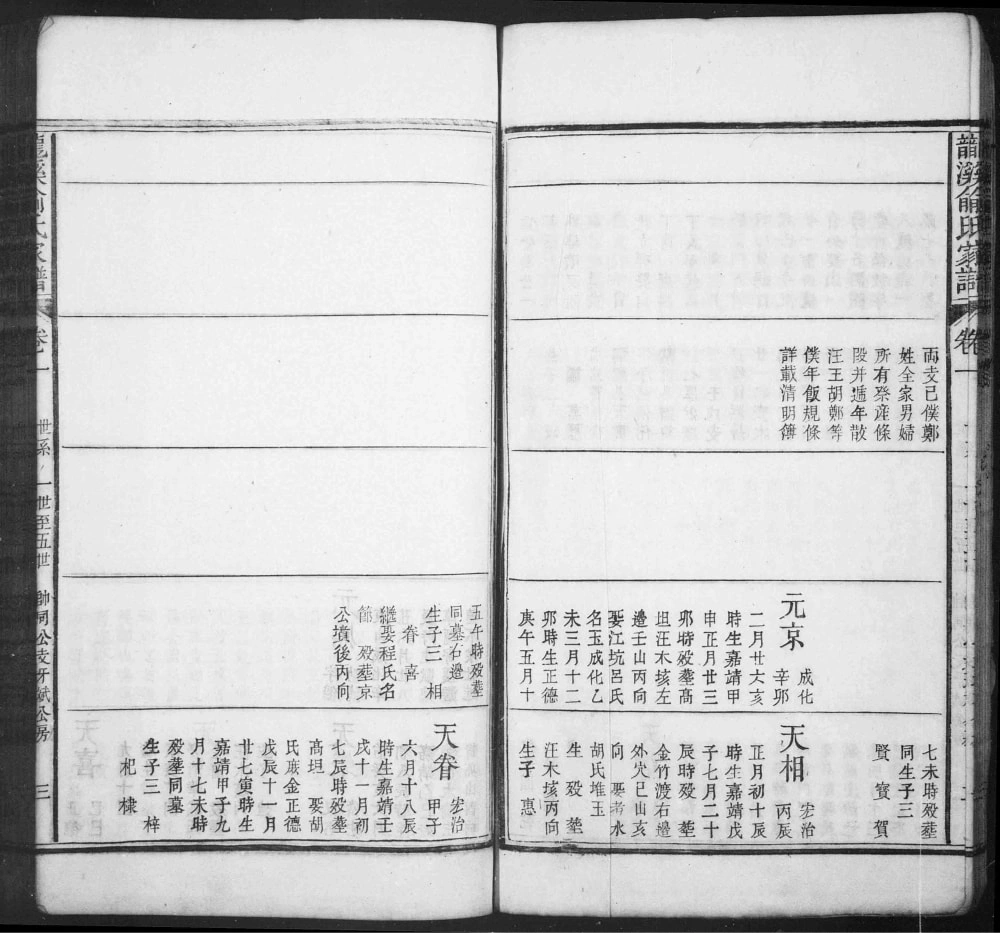 俞氏家譜
卷一
両支已僕鄭
姓全家男婦
所有桼産條
段并遞年散
汪王胡鄭等
僕年飯規條
詳載清明簿
元京
成化
辛卯
二月廿六亥
時生嘉靖甲
申正月廿三
卯時殁塟高
坦汪木垓左
邉壬山丙向
娶江坑呂氏
名玉成化乙
未三月十二
卯時生正德
庚午五月十
七未時殁塟
同生子三
賢 賓 賀
天相
宏治
丙辰
正月初十辰
時生嘉靖戊
子七月二十
辰時殁 塟
金竹渡右邉
外穴巳山亥
向 娶考水
胡氏堆玉
生 殁 塟
汪木垓丙向
生子 惠
五午時殁塟
同墓右邉
生子三 相
眷 喜
繼娶程氏名
節 殁塟京
公墳後丙向
天眷
宏治
甲子
六月十八辰
時生嘉靖壬
戌十一月初
七辰時殁塟
高坦 娶胡
氏宬金正德
戊辰十月
廿七寅時生
嘉靖甲子九
月十七未時
殁塟同墓
生子三 梓
杞 棣
俞氏家譜
卷一
世系 一世至五世
三